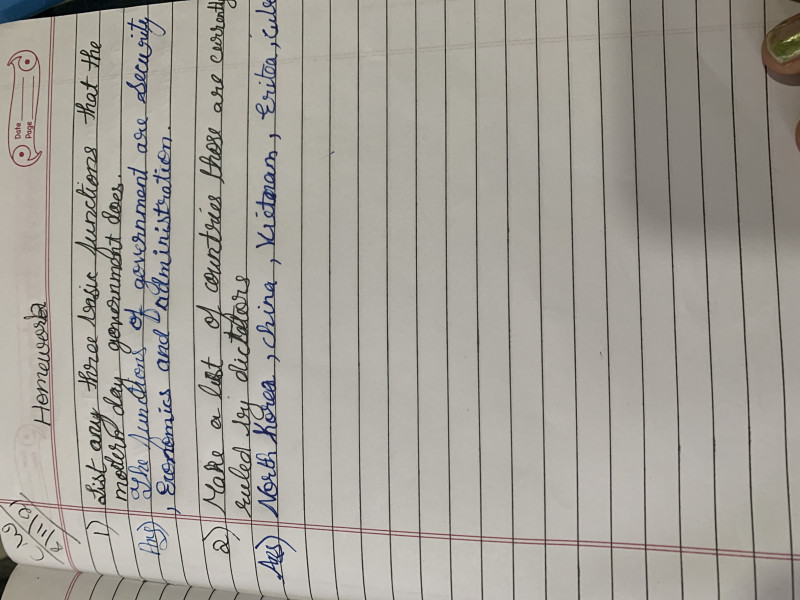 Date
Page
Homework
1) List any three basic functions that the
modern day government does.
Ans) The functions of government are security
, Economics and administration.
2) Make a list of countries those are currently
ruled by dictators
Ans) North Korea, China, Vietnam, Eritea,